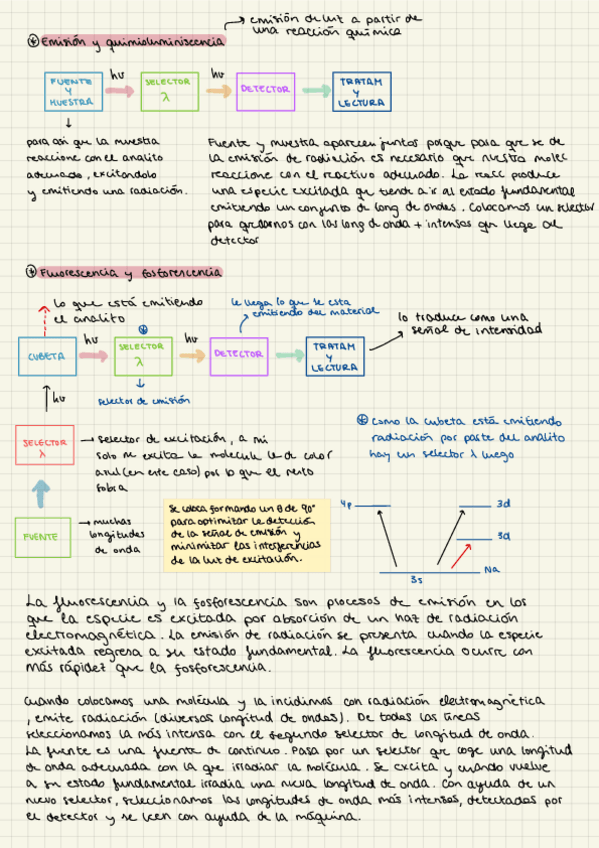 emisión de luz a partir de
una reacción química
Emisión y quimioluminiscencia
FUENTE Y MUESTRA
hν
SELECTOR λ
DETECTOR
TRATAM Y LECTURA
para así que la muestra
reaccione con el analito
adecuado, excitándolo
y emitiendo una radiación.
Fuente y muestra aparecen juntos porque para que se de
la emisión de radiación es necesario que nuestra molec
reaccione con el reactivo adecuado. La reacc produce
una especie excitada que tiende a ir al estado fundamental
emitiendo un conjunto de long de ondas. Colocamos un selector
para quedarnos con las long d onda + intensas que llegue al
detector
Fluorescencia y fosforescencia
lo que está emitiendo
el analito
le llega lo que se esta
emitiendo del material
lo traduce como una
señal de intensidad
CUBETA
hν
SELECTOR λ
hν
DETECTOR
TRATAM Y LECTURA
selector de emisión
hν
como la cubeta está emitiendo
radiación por parte del analito
hay un selector λ luego
SELECTOR λ
selector de excitación, a mi
solo me excita la molecula la de color
azul (en este caso) por lo que el resto
sobra
FUENTE
muchas
longitudes
de onda
Se coloca formando un θ de 90°
para optimizar la detección
de la señal de emisión y
minimizar las interferencias
de la luz de excitación.
4p
3d
3d
3s
Na
La fluorescencia y la fosforescencia son procesos de emisión en los
que la especie es excitada por absorción de un haz de radiación
electromagnética. La emisión de radiación se presenta cuando la especie
excitada regresa a su estado fundamental. La fluorescencia ocurre con
más rápidez que la fosforescencia.
Cuando colocamos una molécula y la incidimos con radiación electromagnética
, emite radiación (diversas longitud de ondas). De todas las líneas
seleccionamos la más intensa con el segundo selector de longitud de onda.
La fuente es una fuente de continuo. Pasa por un selector que coge una longitud
de onda adecuada con la que irradiar la molécula. Se excita y cuando vuelve
a su estado fundamental irradia una nueva longitud de onda. Con ayuda de un
nuevo selector, seleccionamos las longitudes de onda más intensas, detectadas por
el detector y se leen con ayuda de la máquina.